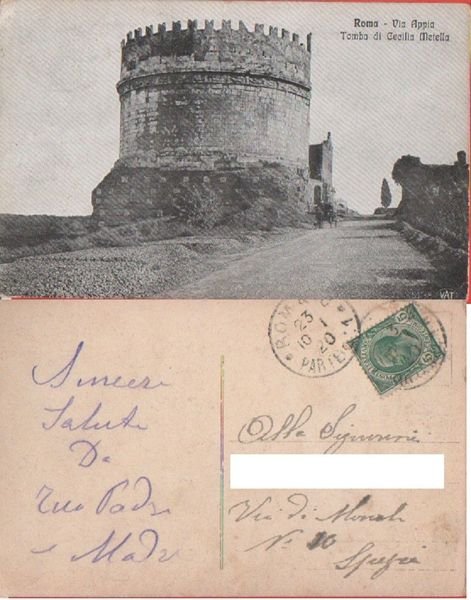 Roma - Via Appia
Tomba di Cecilia Metella
VAT
ROMA
23
10 - 1
20
PARTENZE
Sinceri
Saluti
Da
Tuo Padre
e Madre
Alla Signorina
Via di
N. 10
Spezia